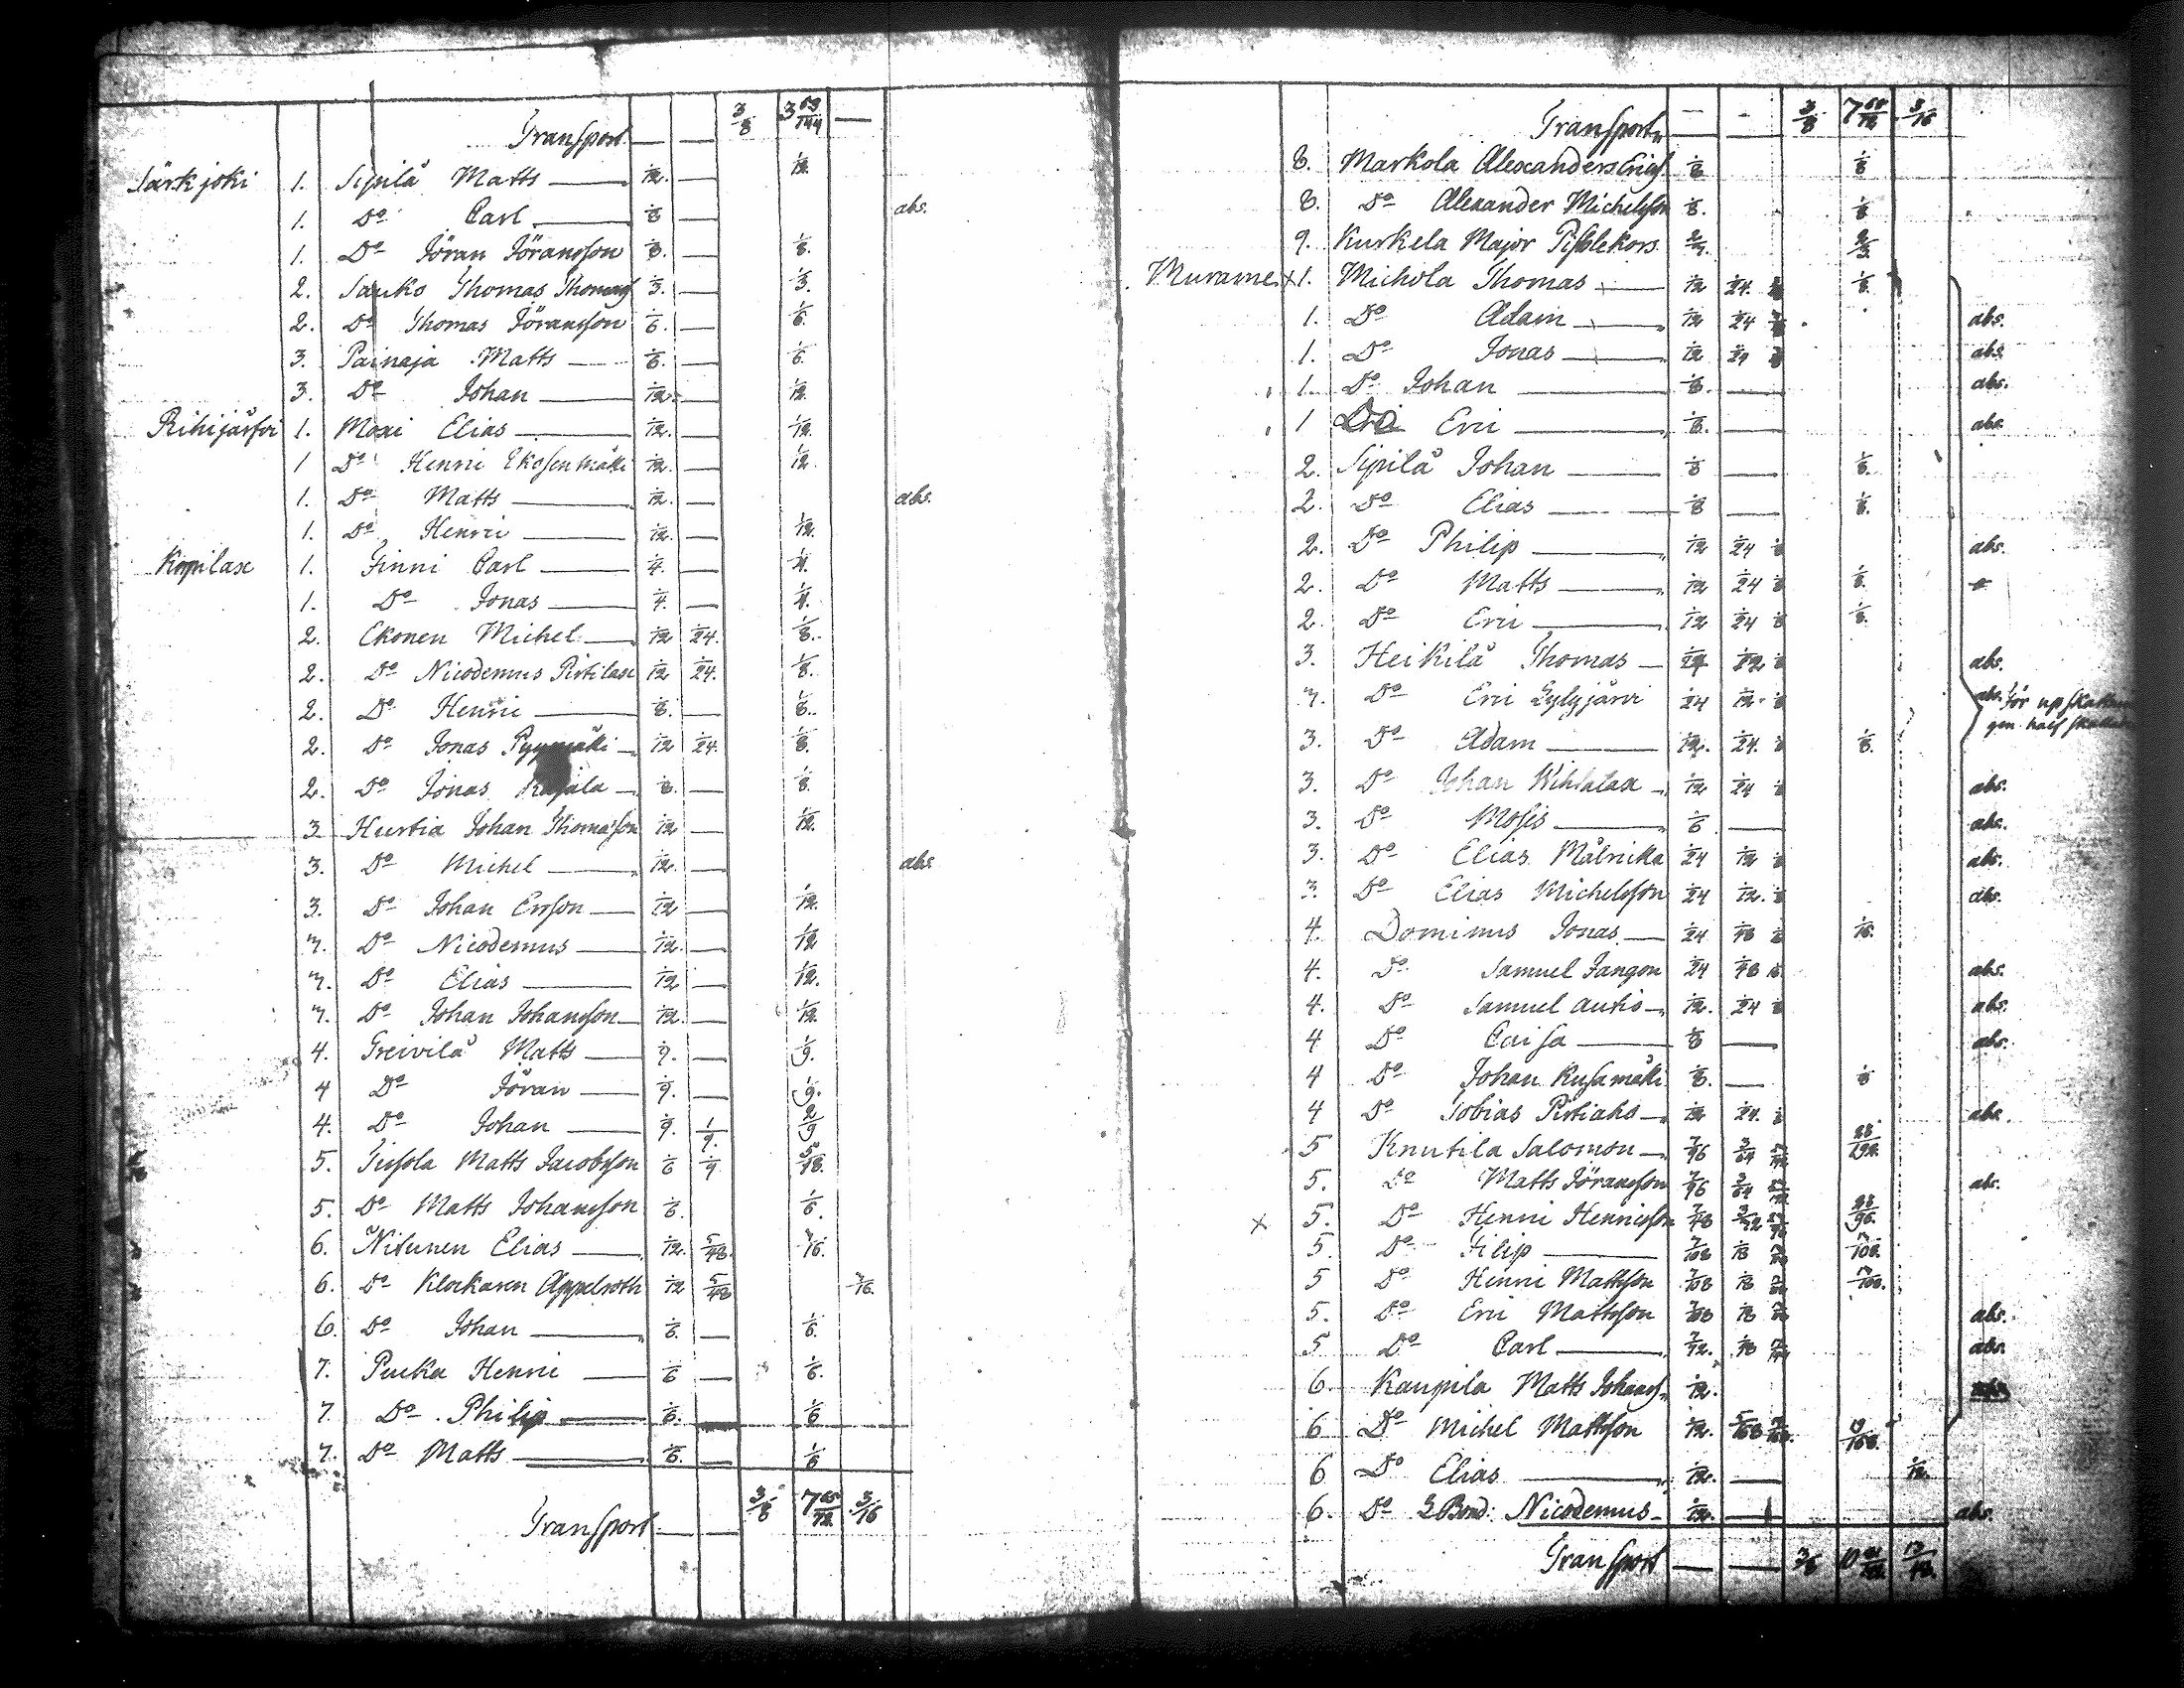 Transport — — 3/8 3 63/144 —
Särkjoki 1. Sipilä Matts — 1/12. — 1/12.
1. Do Carl — 1/8 — abs.
1. Do Jöran Jöransson 1/8. — 1/8.
2. Sauko Thomas Thomass 1/3. — 1/3.
2. Do Thomas Jöransson 1/6. — 1/6.
3. Painaja Matts — 1/6. — 1/6.
3. Do Johan — 1/12. — 1/12.
Rihijärfvi 1. Moxi Elias — 1/12. — 1/12.
1 Do Henric Ekosenmäki 1/12. — 1/12.
1. Do Matts — 1/12. — abs.
1. Do Henric — 1/12. — 1/12.
Kopilax 1. Finni Carl — 1/4. — 1/4.
1. Do Jonas — 1/4. — 1/4.
2. Ekonen Michel — 1/12 1/24. 1/8.
2. Do Nicodemus Pirtilax 1/12 1/24. 1/8.
2. Do Henric — 1/8. — 1/8.
2. Do Jonas 1/12 1/24. 1/8.
2. Do Jonas — 1/8. — 1/8.
3 Hurtia Johan Thomasson 1/12 — 1/12.
3. Do Michel — 1/12. — abs
3. Do Johan Ersson — 1/12 — 1/12.
3. Do Nicodemus — 1/12. — 1/12
3. Do Elias — 1/12 — 1/12.
3. Do Johan Johansson — 1/12. — 1/12.
4. Greivilä Matts — 1/9. — 1/9.
4 Do Jöran — 1/9. — 1/9.
4. Do Johan — 1/9. 1/9. 2/9
5. Matts Jacobsson 1/6 1/9 5/18.
5. Do Matts Johansson 1/6. 1/6.
6. Nitunen Elias — 1/12. 5/48. 3/16.
6. Do Klockaren Appelroth 1/12 5/48 3/16.
6. Do Johan — 1/6. — 1/6.
7. Pucka Henric — 1/6 — 1/6.
7. Do Philip — 1/6. — 1/6
7. Do Matts — 1/6. — 1/6
Transport — — 3/8 7 65/72 3/16
Transport — - 3/8 7 65/72 3/16
8. Markola Alexanders Erics 1/8 1/8
8. Do Alexander Michelsson 1/8. 1/8
9. Kurkela Major Pistolekors 2/3. 2/3.
Murame x 1. Michola Thomas — 1/12 1/24 1/8 1/8.
1. Do Adam — 1/12 1/24 1/8 abs.
1. Do Jonas — 1/12 1/24 1/8 abs
1. Do Johan — 1/8. — abs.
1 Do Eric — 1/8. — abs.
2. Sipilä Johan — 1/8 — 1/8.
2. Do Elias — 1/8 — 1/8.
2. Do Philip — 1/12 1/24 1/8 abs.
2. Do Matts — 1/12 1/24 1/8 1/8.
2. Do Eric — 1/12 1/24 1/8 1/8.
3. Heikilä Thomas — 1/24 1/12 1/8 abs.
3. Do Eric Gylyjärvi 1/24 1/12. 1/8 abs. för upskattnin
gen half skatten
3. Do Adam — 1/12. 1/24. 1/8 1/8.
3. Do Johan Wihtalax — 1/12 1/24 1/8 abs.
3. Do Moses — 1/6 — abs.
3. Do Elias 1/24 1/12 1/8 abs.
3. Do Elias Michelsson 1/24 1/12. 1/8 abs.
4. Dominus Jonas — 1/24 1/48 1/16 1/16.
4. Do Samuel Jangon 1/24 1/48 1/16. abs.
4. Do Samuel Autio — 1/12. 1/24 1/8 abs.
4 Do Caisa — 1/8 — abs.
4 Do Johan Kusamäki 1/8. — 1/8
4 Do Tobias Pirtiaho — 1/12 1/24. 1/8 abs.
5 Knutila Salomon — 7/96 3/64 23/192 23/192.
5. Do Matts Jöransson 7/96 3/64 23/192 abs.
x 5. Do Henric Henricsson 7/48 3/32 23/96 23/96.
5. Do Filip — 7/108 1/18
5 Do Henric Mattsson 7/108 1/18
5. Do Eric Mattsson 7/108 1/18 abs.
5 Do Carl — 7/72. 1/18 abs.
6. Kaupila Matts Johanss. 1/12.
6 Do Michel Mattsson 1/12.
6 Do Elias — 1/12. — 1/12.
6. Do Nicodemus — 1/12. — abs.
Transport — — 3/8 10